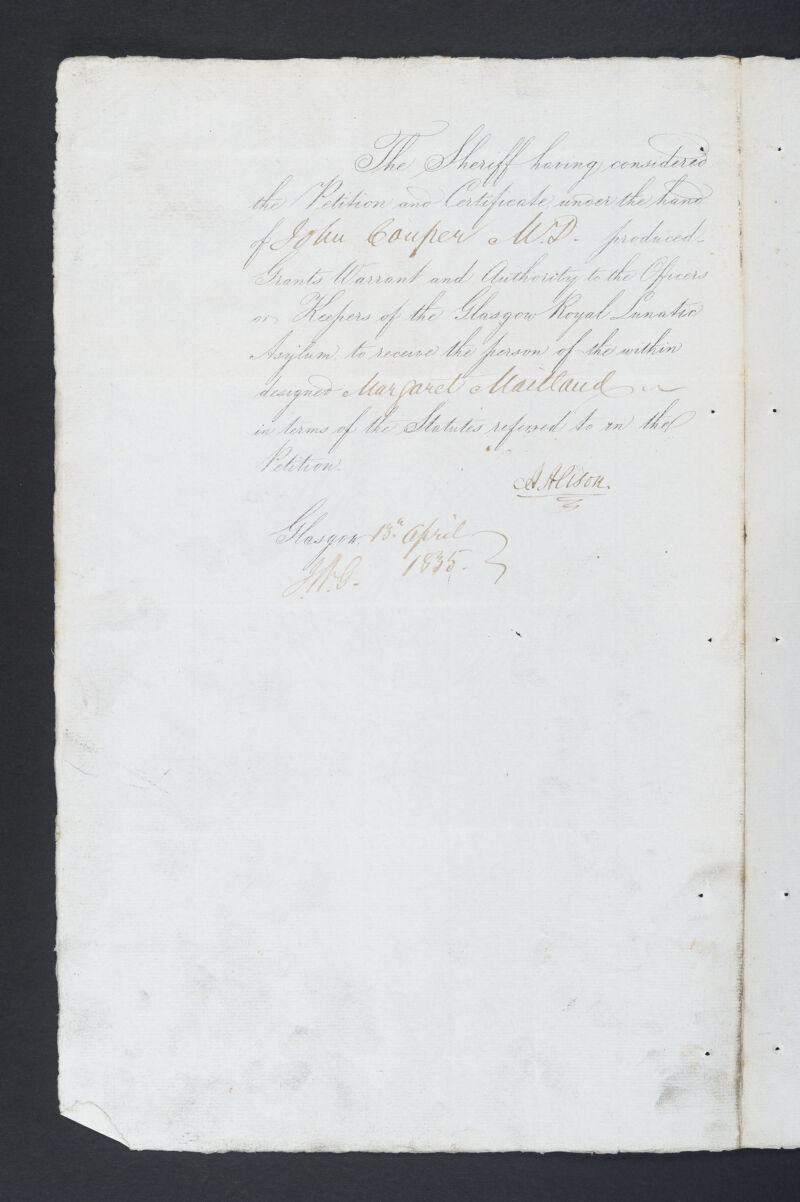 The Sheriff having considered
the Petition and Certificate under the hand
of John Couper M.D. produced
Grants Warrant and Authority to the Officers
or Keepers of the Glasgow Royal Lunatic
Asylum to receive the person of the within
designed Margaret Maitland
in terms of the Statutes referred to in the
Petition.
A Alison.
Glasgow 13th April
1835.